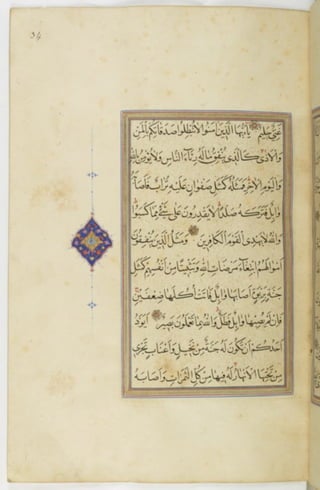 34
غَنِيٌّ حَلِيمٌ يَا أَيُّهَا الَّذِينَ آمَنُوا لَا تُبْطِلُوا صَدَقَاتِكُمْ بِالْمَنِّ
وَالْأَذَىٰ كَالَّذِي يُنْفِقُ مَالَهُ رِئَاءَ النَّاسِ وَلَا يُؤْمِنُ بِاللَّهِ
وَالْيَوْمِ الْآخِرِ فَمَثَلُهُ كَمَثَلِ صَفْوَانٍ عَلَيْهِ تُرَابٌ فَأَصَابَهُ
وَابِلٌ فَتَرَكَهُ صَلْدًا لَا يَقْدِرُونَ عَلَىٰ شَيْءٍ مِمَّا كَسَبُوا
وَاللَّهُ لَا يَهْدِي الْقَوْمَ الْكَافِرِينَ وَمَثَلُ الَّذِينَ يُنْفِقُونَ
أَمْوَالَهُمُ ابْتِغَاءَ مَرْضَاتِ اللَّهِ وَتَثْبِيتًا مِنْ أَنْفُسِهِمْ كَمَثَلِ
جَنَّةٍ بِرَبْوَةٍ أَصَابَهَا وَابِلٌ فَآتَتْ أُكُلَهَا ضِعْفَيْنِ
فَإِنْ لَمْ يُصِبْهَا وَابِلٌ فَطَلٌّ وَاللَّهُ بِمَا تَعْمَلُونَ بَصِيرٌ أَيَوَدُّ
أَحَدُكُمْ أَنْ تَكُونَ لَهُ جَنَّةٌ مِنْ نَخِيلٍ وَأَعْنَابٍ تَجْرِي
مِنْ تَحْتِهَا الْأَنْهَارُ لَهُ فِيهَا مِنْ كُلِّ الثَّمَرَاتِ وَأَصَابَهُ